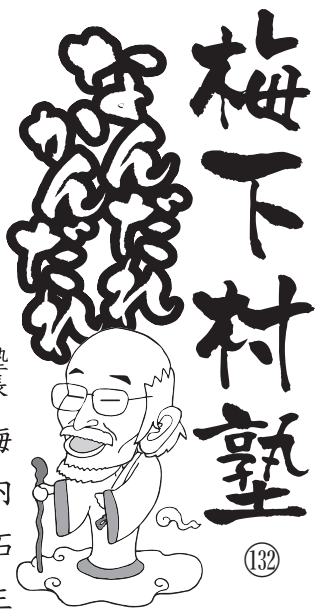 梅下村塾
132
なんだれ
かんだれ
塾長 梅内拓生